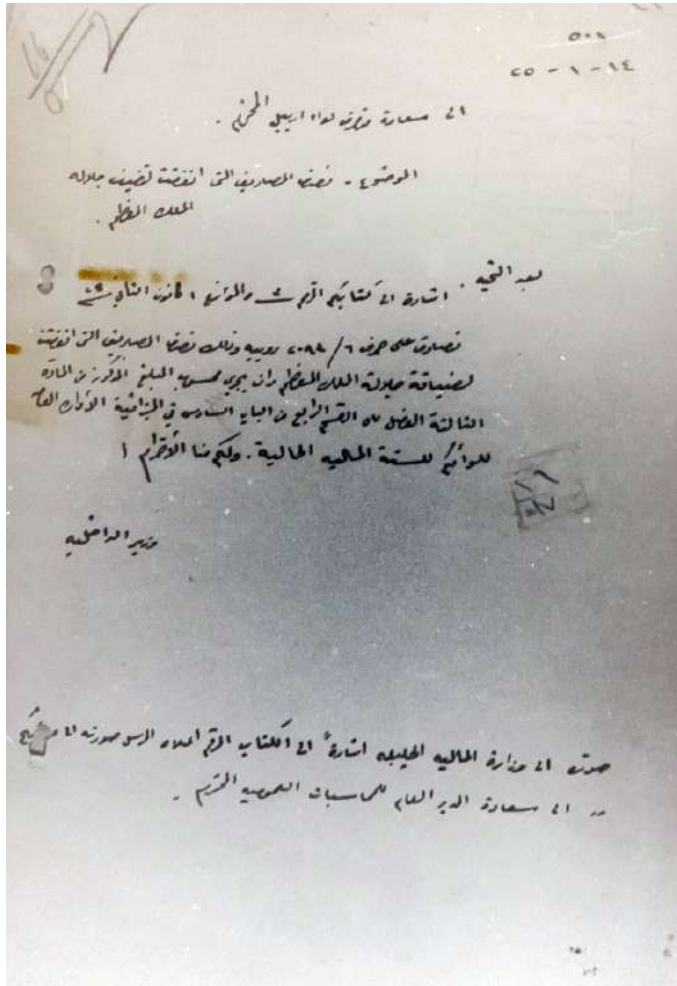 ٥٠١
١٤ - ١ - ٢٥
الى سعادة متصرف لواء اربيل المحترم .
الموضوع - المصاريف التى انفقت لضيف جلاله
الملك المعظم .
بعد التحيه . اشارة الى كتابكم الرقم والمؤرخ ١ كانون الثاني
نصادق على صرف روبيه وذلك المصاريف التى انفقت
لضيافة جلالة الملك المعظم وان يجري المبلغ المذكور من المادة
الثالثة الفصل القسم الرابع من الباب السادس في الميزانية
للوائكم للسنة المالية الحالية . ولكم منا الاحترام ا
وزير الداخليه
صورته الى وزارة الماليه الجليله اشارةً الى الكتاب الرقم اعلاه المرسل صورته الى
الى سعادة المدير العام للمحاسبات العموميه المحترم .